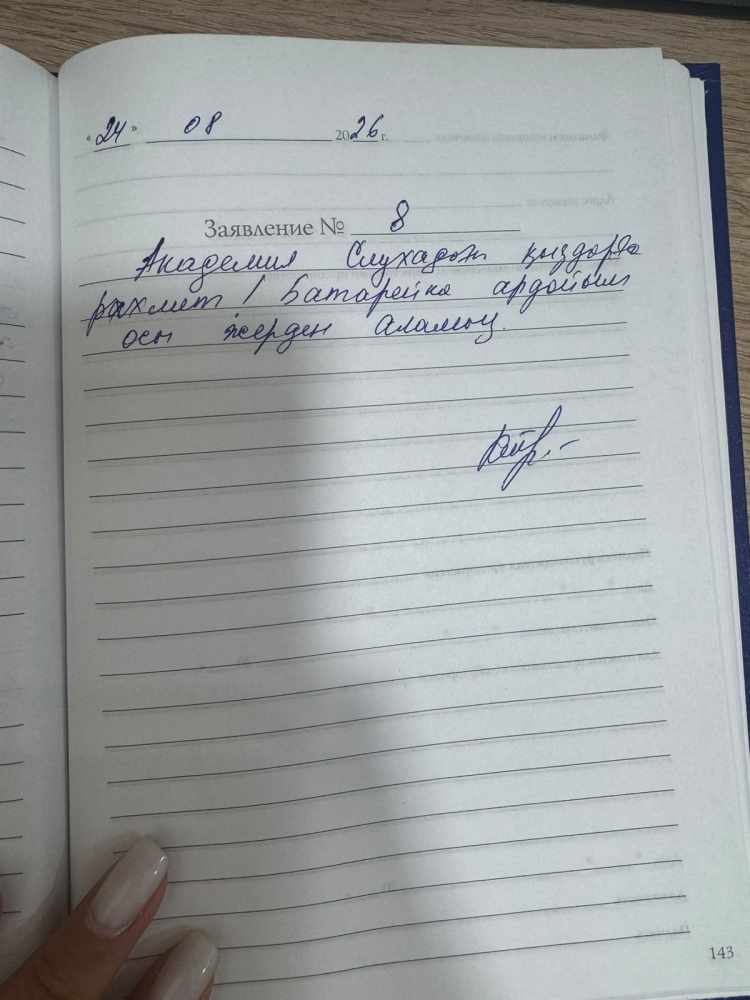 «24» 08 2026 г.
Заявление № 8
Академия Слухадағы қыздарға
рахмет! Батарейка ардайым
осы жерден аламыз.
143